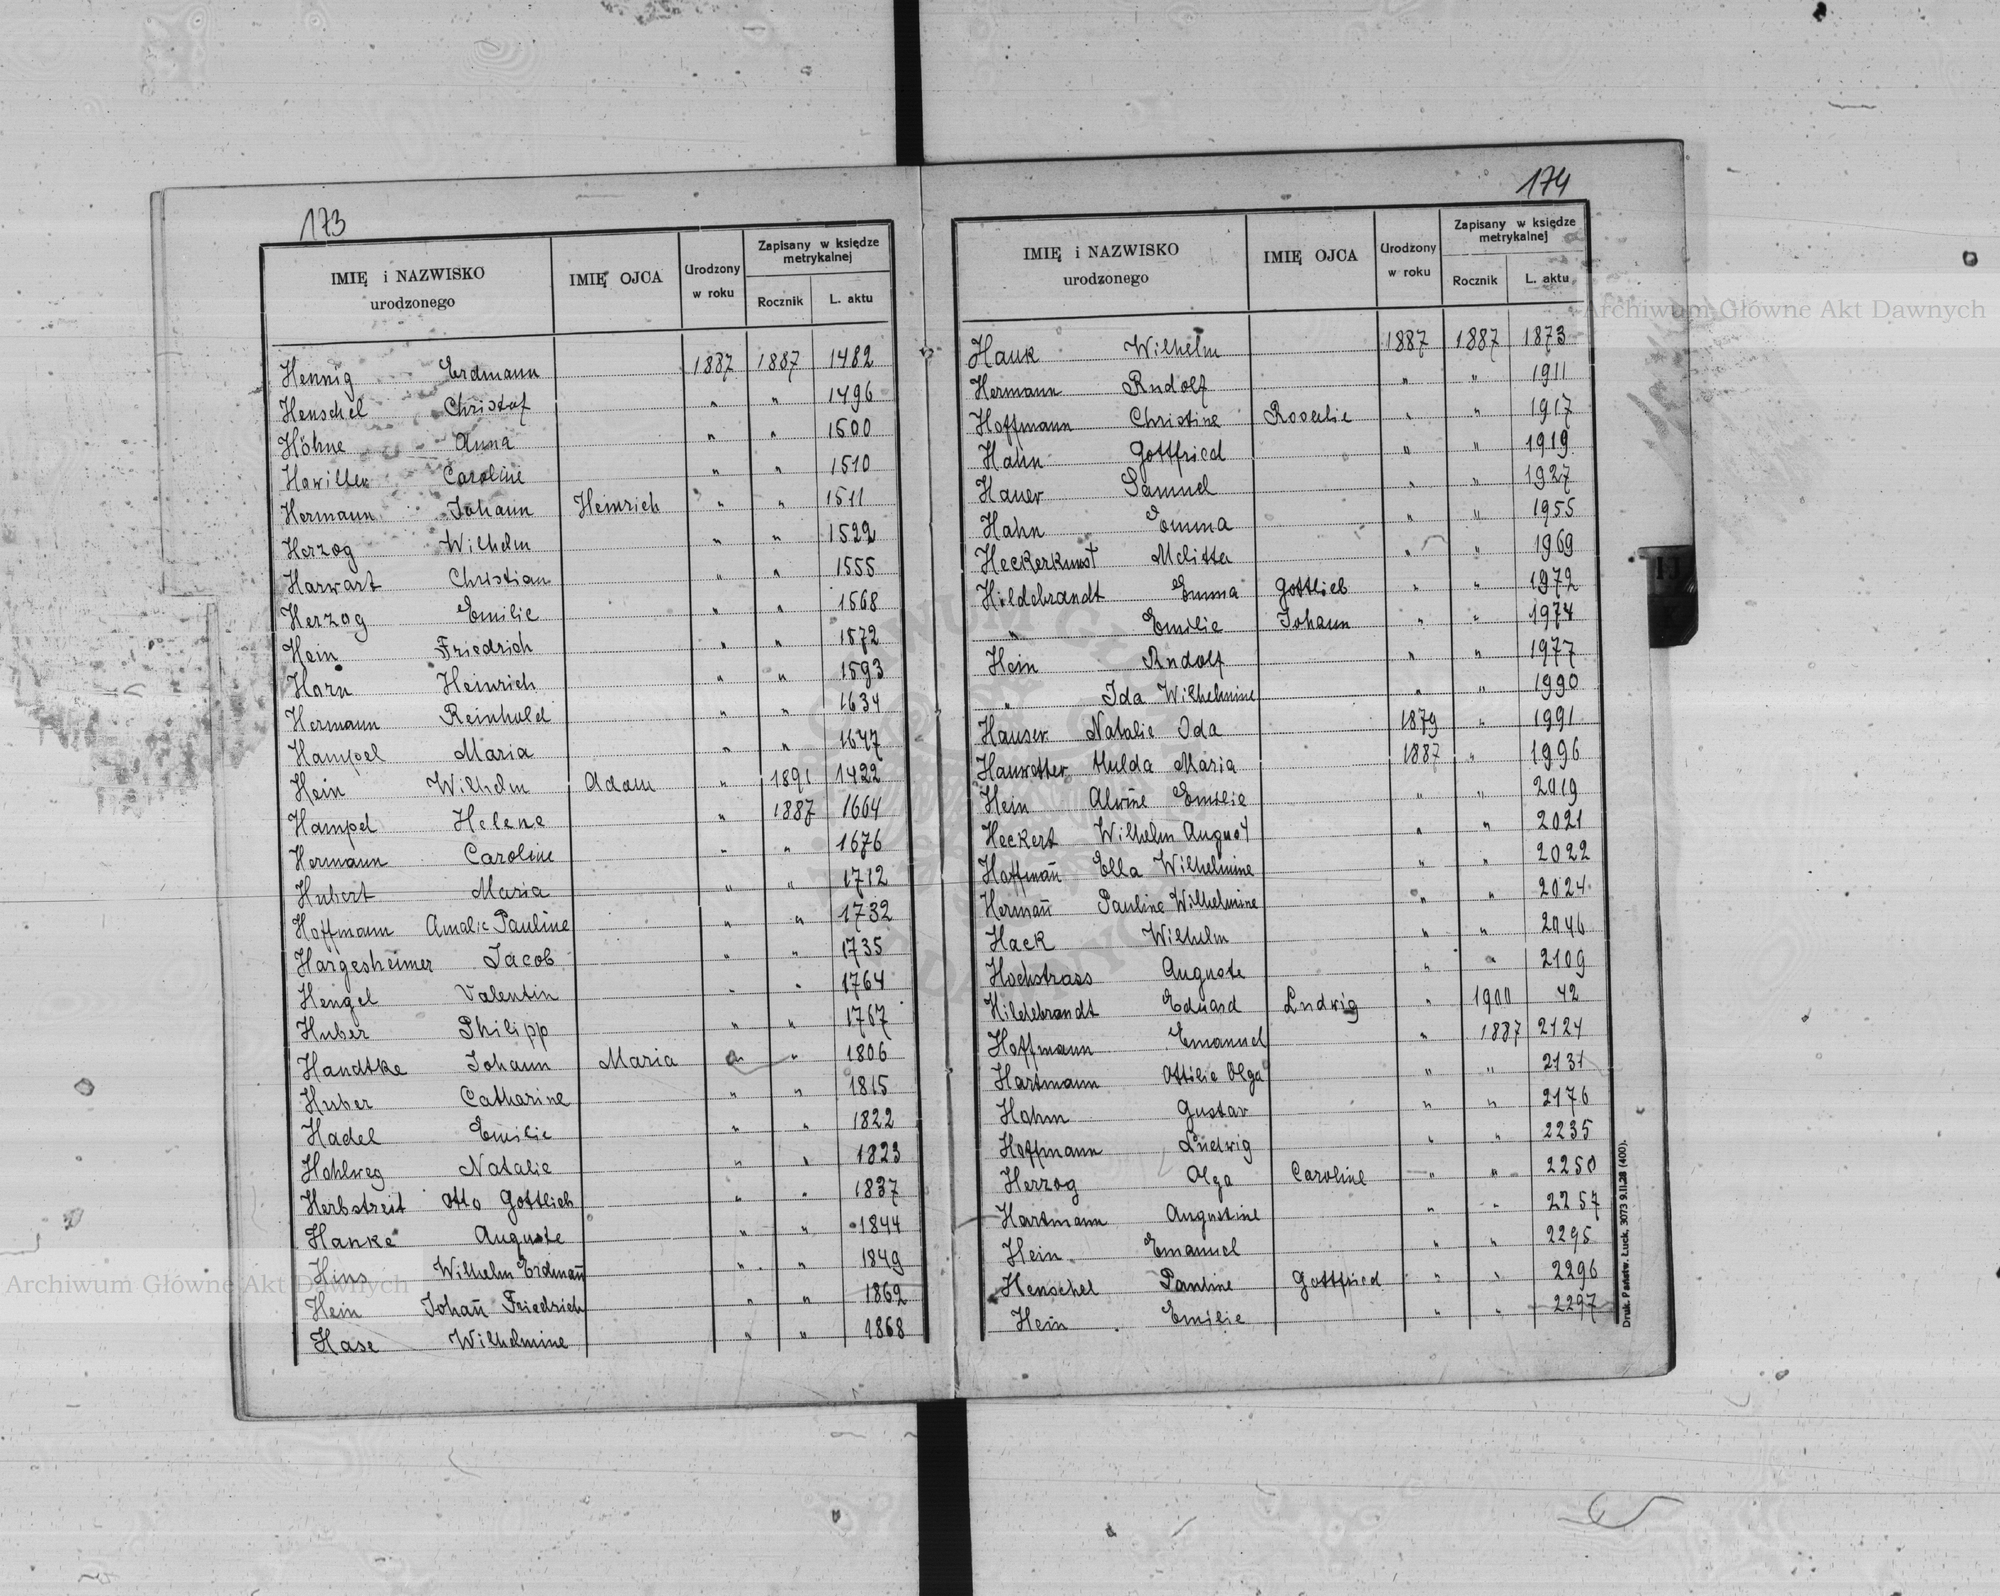 173
IMIĘ i NAZWISKO urodzonego IMIĘ OJCA Urodzony w roku Zapisany w księdze metrykalnej Rocznik L. aktu
Hennig Erdmann 1887 1887 1482
Henschel Christof " " 1496
Höhne Anna " " 1500
Hawiller Caroline " " 1510
Hermann Johann Heinrich " " 1511
Herzog Wilhelm " " 1522
Harwart Christian " " 1555
Herzog Emilie " " 1568
Hein Friedrich " " 1572
Horn Heinrich " " 1593
Hermann Reinhold " " 1634
Hampel Maria " " 1647
Hein Wilhelm Adam " 1891 1422
Hampel Helene " 1887 1664
Hermann Caroline " " 1676
Hubert Maria " " 1712
Hoffmann Amalie Pauline " " 1732
Hargesheimer Jacob " " 1735
Hengel Valentin " " 1764
Huber Philipp " " 1767
Handtke Johann Maria " " 1806
Huber Catharine " " 1815
Hadel Emilie " " 1822
Hohlweg Natalie " " 1823
Herbstreit Otto Gottlieb " " 1837
Hanke Auguste " " 1844
Hins Wilhelm Erdmañ " " 1849
Hein Johañ Friedrich " " 1862
Hase Wilhelmine " " 1868
174
IMIĘ i NAZWISKO urodzonego IMIĘ OJCA Urodzony w roku Zapisany w księdze metrykalnej Rocznik L. aktu
Hauk Wilhelm 1887 1887 1873
Hermann Rudolf " " 1911
Hoffmann Christine Rosalie " " 1917
Hahn Gottfried " " 1919
Hauer Samuel " " 1927
Hahn Emma " " 1955
Heckerkunst Melitta " " 1969
Hildebrandt Emma Gottlieb " " 1972
" Emilie Johann " " 1974
Hein Rudolf " " 1977
" Ida Wilhelmine " " 1990
Hauser Natalie Ida 1879 " 1991
Hauwetter Hulda Maria 1887 " 1996
Hein Alwine Emilie " " 2019
Heckert Wilhelm August " " 2021
Hoffmañ Ella Wilhelmine " " 2022
Hermañ Pauline Wilhelmine " " 2024
Hack Wilhelm " " 2046
Hochstrass Auguste " " 2109
Hildebrandt Eduard Ludwig " 1900 42
Hoffmann Emanuel " 1887 2124
Hartmann Ottilie Olga " " 2131
Hohm Gustav " " 2176
Hoffmann Ludwig " " 2235
Herzog Olga Caroline " " 2250
Hartmann Augustine " " 2257
Hein Emanuel " " 2295
Henschel Pauline Gottfried " " 2296
Hein Emilie " " 2297
Druk. Państw. Łuck. 3073 9.11.28 (400).
Archiwum Główne Akt Dawnych
Archiwum Główne Akt Dawnych